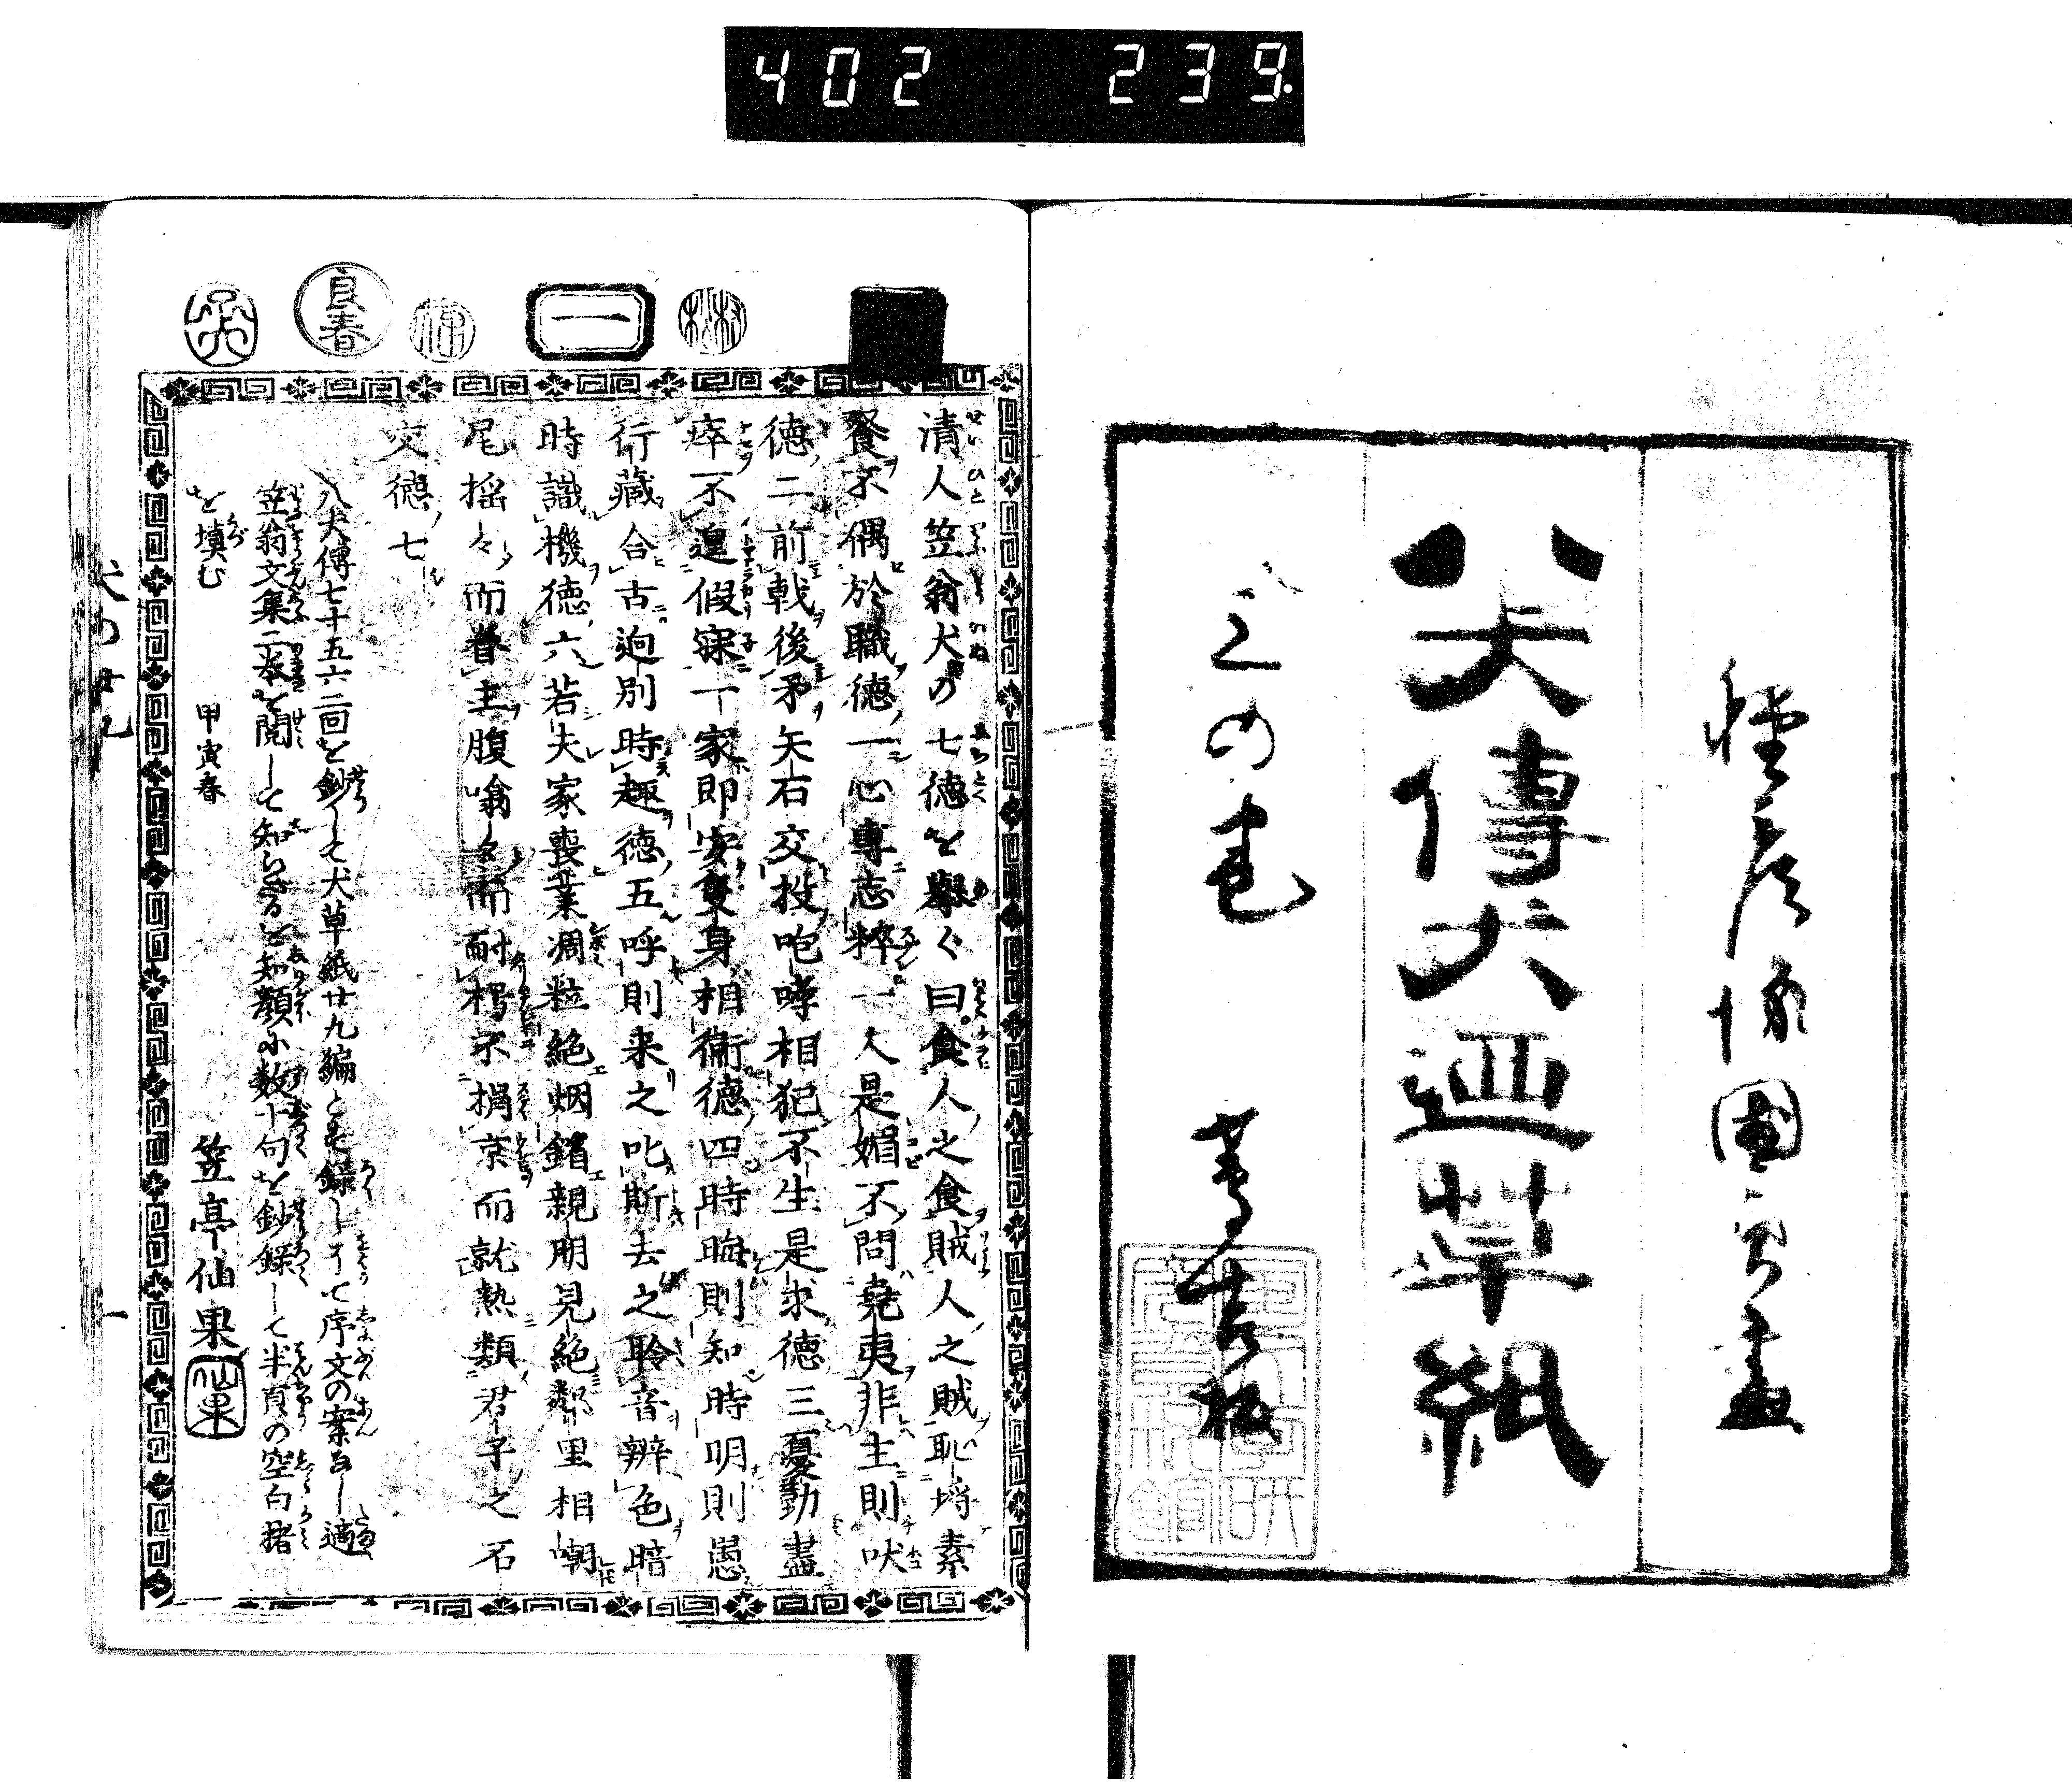 402 239.
八犬傳犬廼草紙
上の巻
國貞画
良春
一
清人笠翁犬の七徳を擧て曰食人之食賊人之賊恥埓素
餐不偶於職徳一心専志粹一人是媚不問堯夷非主則吠
徳二前戟後矛矢石交投咆哮相犯不生是求徳三憂勤盡
瘁不遑假寐一家即安隻身相衞徳四時晦則知時明則愚
行藏合古迥別時趣徳五呼則来之叱斯去之聆音辨色暗
時識機徳六若夫家喪業凋粒絶烟銷親朋見絶鄰里相嘲
尾揺々而眷主腹噏々而耐枵不捐京而就熱類君子之石
交徳七
八犬傳七十五六二回を鈔して犬草紙廿九編とす録しをへて序文の案なし適
笠翁文集二本を閲して知らざるを知顔に数十句を鈔録して半頁の空白楮
を填む
甲寅春
笠亭仙果
仙果
犬の廿九
一